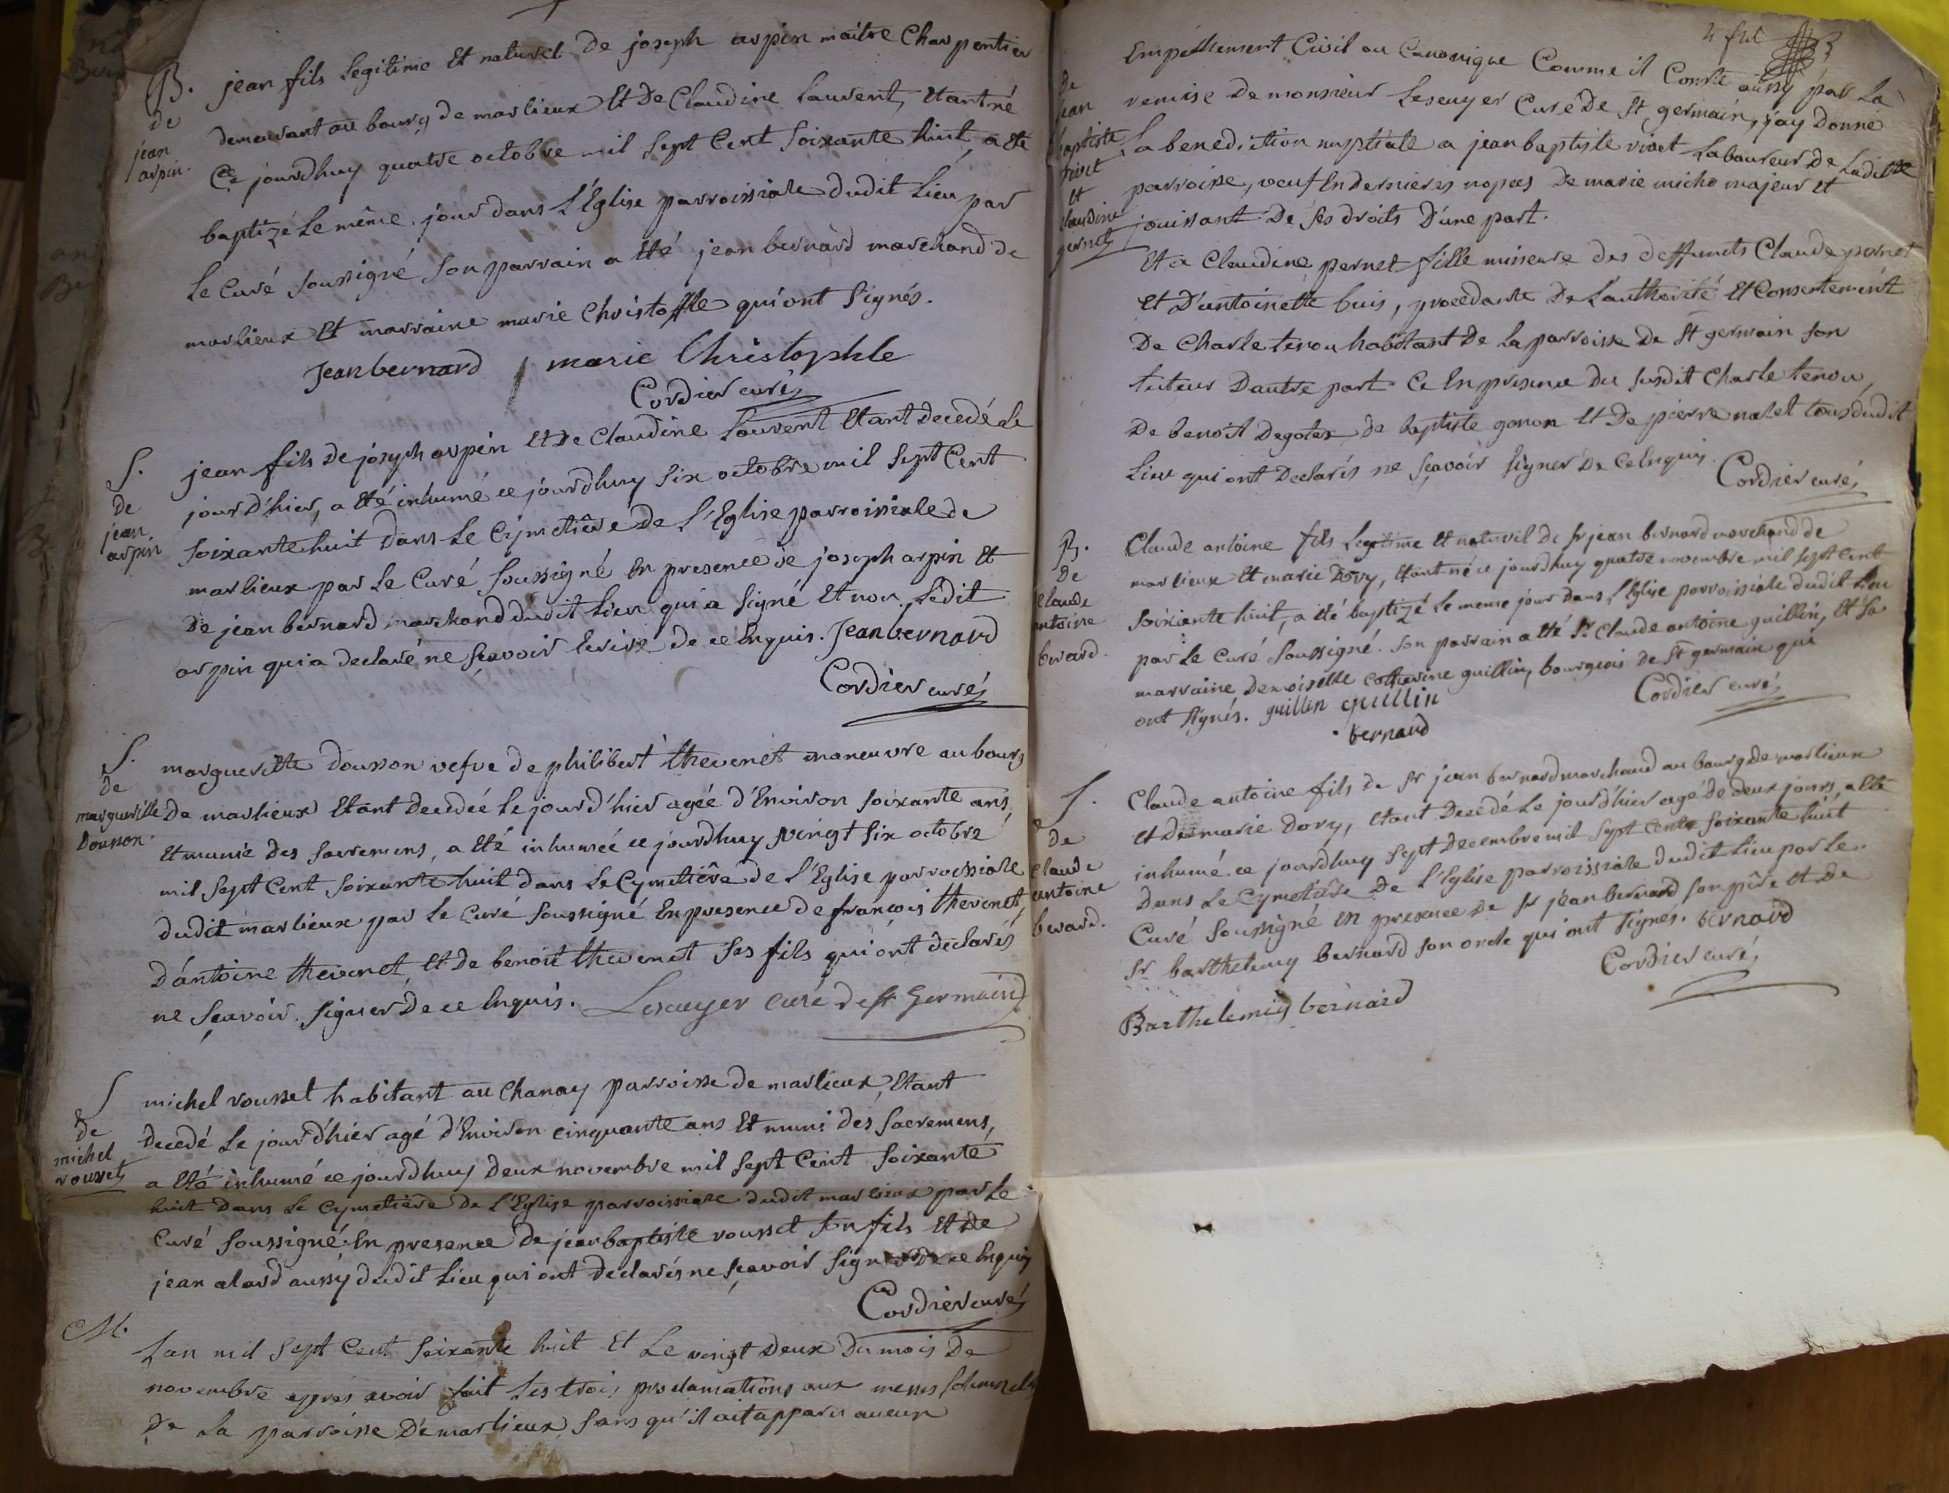 B.
de
jean
arpin.
jean fils legitime Et naturel de joseph arpin maitre Charpentier
demeurant au bourg de marlieux Et De Claudine Laurent, Etant né
Ce jourdhuy quatre octobre mil sept Cent soixante huit, a eté
baptizé Le même jour dans L'Eglise parroissiale dudit Lieu par
Le Curé soussigné son parrain a Eté jean bernard marchand de
marlieux Et marraine marie Christoffle qui ont signés.
Jean bernard marie Christophle
Cordier curé
S.
de
jean
arpin
jean fils De joseph arpin Et De Claudine Laurent Etant Decedé Le
jour d'hier, a Eté inhumé ce jourdhuy six octobre mil sept Cent
soixante huit Dans Le Cymetière De L'Eglise parroissiale de
marlieux par Le Curé soussigné En presence de joseph arpin Et
De jean bernard marchand dudit Lieu qui a signé Et non Ledit
arpin qui a declaré ne sçavoir Ecrire de ce Enquis. Jean bernard
Cordier curé
S.
de
margueritte
Dousson.
margueritte dousson vefve de philibert thevenet manœuvre au bourg
De marlieux Etant Decedée Le jour d'hier agée d'Environ soixante ans,
Et munie des sacremens, a Eté inhumée ce jourdhuy vingt six octobre
mil sept Cent soixante huit dans Le Cymetière de L'Eglise parroissiale
dudit marlieux par Le Curé soussigné En presence de françois thevenet,
D'antoine thevenet, Et de benoit thevenet ses fils qui ont declarés
ne sçavoir signer De ce Enquis. Lescuyer curé de st Germain
S
de
michel
rousset
michel rousset habitant au Chanay parroisse de marlieux, Etant
Decedé Le jour d'hier agé d'Environ cinquante ans Et muni des sacremens,
a Eté inhumé ce jourdhuy deux novembre mil sept Cent soixante
huit Dans Le Cymetière De L'Eglise parroissiale dudit marlieux par Le
Curé soussigné En presence De jean baptiste rousset son fils Et De
jean alard aussy dudit Lieu qui ont declarés ne sçavoir signer De ce Enquis
Cordier curé
M.
Lan mil sept Cent soixante huit Et Le vingt Deux du mois De
novembre après avoir fait Les trois proclamations aux messes
De La parroisse De marlieux, sans qu'il ait apparu aucun
De
jean
baptiste
vivet
et
Claudine
pernet
Empêchement Civil ou Canonique Comme il Conste aussy par La
remise De monsieur Lescuyer Curé De St germain, jay Donné
La benediction nuptiale a jean baptiste vivet Laboureur De Laditte
parroisse, veuf En dernieres nopces De marie micho majeur Et
jouissant De ses droits D'une part.
Et a Claudine pernet fille mineure des deffunts Claude pernet
Et D'antoinette buis, procedante De L'authorité Et Consentement
De Charle tenou habitant De La parroisse De St germain son
tuteur Dautre part. Ce En presence du susdit Charle tenou,
De benoit Degotex de baptiste gonon Et De pierre natel tous dudit
Lieu qui ont Declarés ne sçavoir signer De Ce Enquis.
Cordier curé
B.
De
Claude
antoine
bernard.
Claude antoine fils Legitime Et naturel de sr jean bernard marchand de
marlieux Et marie Dory, Etant né ce jourdhuy quatre novembre mil sept Cent
soixante huit, a Eté baptizé Le meme jour Dans L'Eglise parroissiale dudit Lieu
par Le Curé soussigné. son parrain a Eté sr Claude antoine guillin, Et sa
marraine Demoiselle Catherine guillin, bourgeois de St germain qui
ont signés. guillin guillin
Cordier curé
bernard
S.
De
Claude
antoine
bernard.
Claude antoine fils de sr jean bernard marchand au bourg de marlieux
Et De marie Dory, Etant Decédé Le jour d'hier agé de deux jours, a Eté
inhumé ce jourdhuy sept Decembre mil sept Cent soixante huit
Dans Le Cymetière De L'Eglise parroissiale dudit Lieu par Le
Curé soussigné En presence De sr jean bernard son père Et De
sr barthelemy bernard son oncle qui ont signés. bernard
Cordier curé
Barthelemis bernard